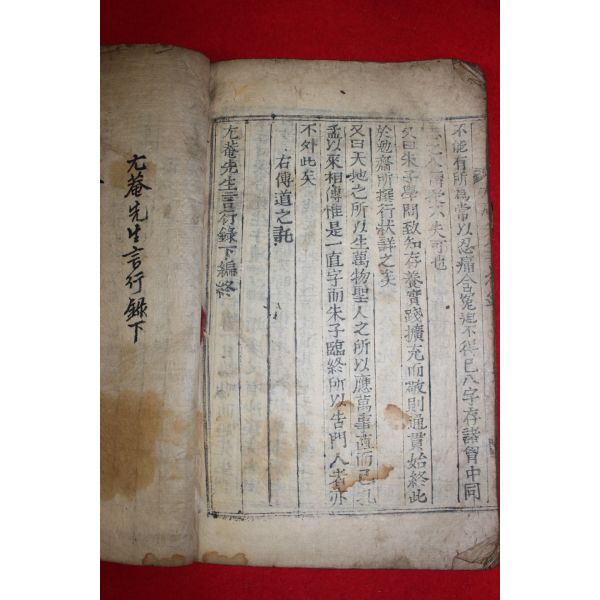 不能有所爲常以忍痛含冤迫不得已八字存諸胷中同
志之士傳守勿失可也
又曰朱子學問致知存養實踐擴充而敬則通貫始終此
於勉齋所撰行狀詳之矣
又曰天地之所以生萬物聖人之所以應萬事直而已孔
孟以來相傳惟是一直字而朱子臨終所以告門人者亦
不外此矣
右傳道之託
尤菴先生言行錄下編終
尤菴先生言行錄下